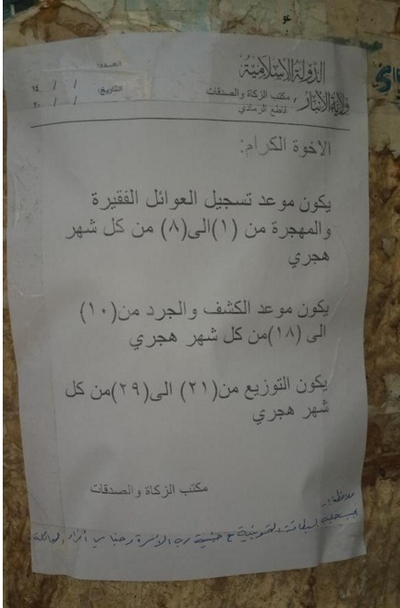 الدولة الإسلامية
ولاية الأنبار
مكتب الزكاة والصدقات
قاطع الرمادي
العدد:
التاريخ: / / ١٤
/ / ٢٠
الاخوة الكرام:
يكون موعد تسجيل العوائل الفقيرة
والمهجرة من (١)الى(٨) من كل شهر
هجري
يكون موعد الكشف والجرد من(١٠)
الى (١٨)من كل شهر هجري
يكون التوزيع من(٢١) الى(٢٩)من كل
شهر هجري
مكتب الزكاة والصدقات
ملاحظة:
البطاقة التموينية مع جنسية رب الأسرة أفراد العائلة